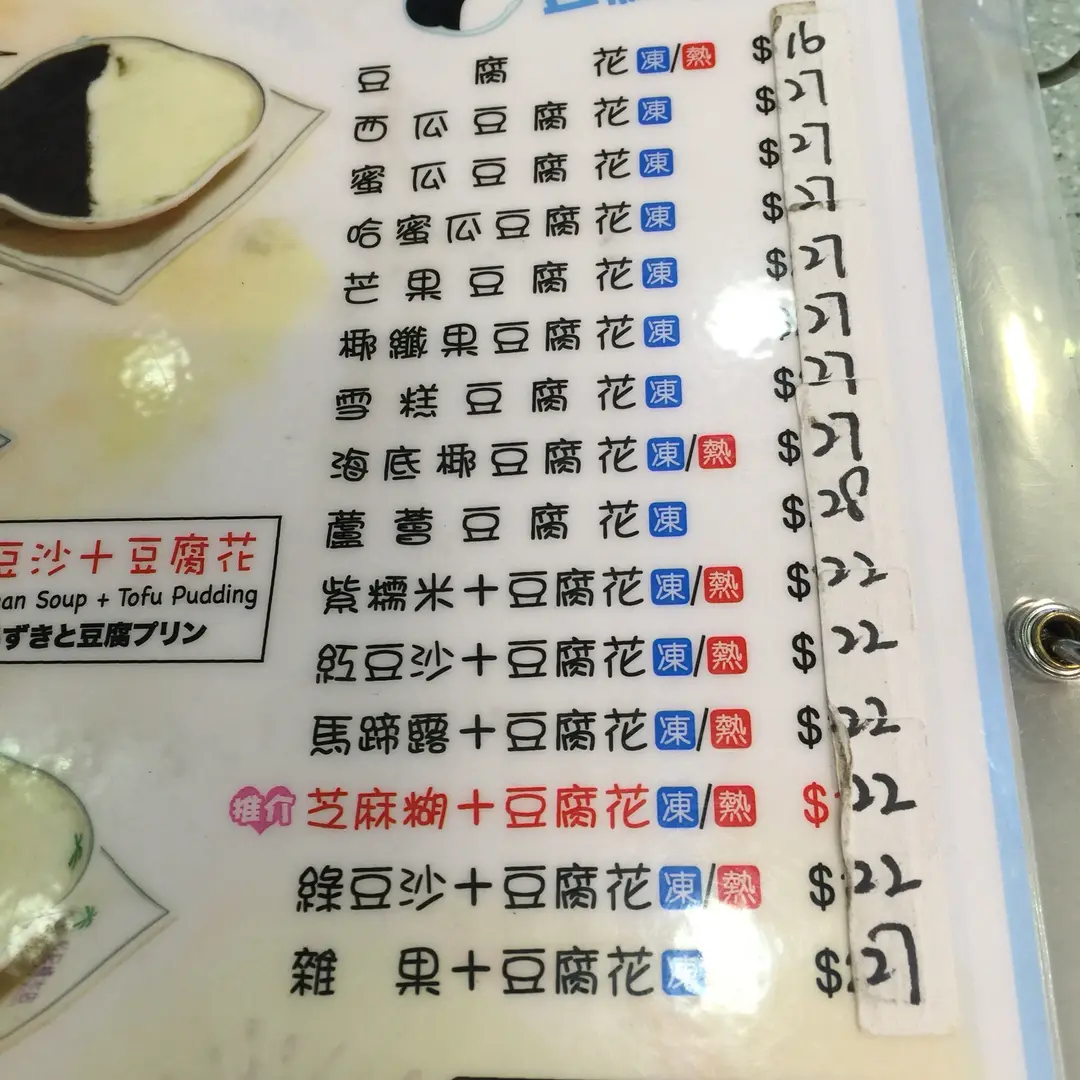 豆腐花 凍/熱 $16
西瓜豆腐花 凍 $27
蜜瓜豆腐花 凍 $27
哈蜜瓜豆腐花 凍 $27
芒果豆腐花 凍 $27
椰纖果豆腐花 凍 27
雪糕豆腐花 凍 $27
海底椰豆腐花 凍/熱 $27
蘆薈豆腐花 凍 $28
紫糯米+豆腐花 凍/熱 $22
紅豆沙+豆腐花 凍/熱 $22
馬蹄露+豆腐花 凍/熱 $22
推介 芝麻糊+豆腐花 凍/熱 $22
綠豆沙+豆腐花 凍/熱 $22
雜果+豆腐花 凍 $27
豆沙+豆腐花
Soup + Tofu Pudding
ずきと豆腐プリン